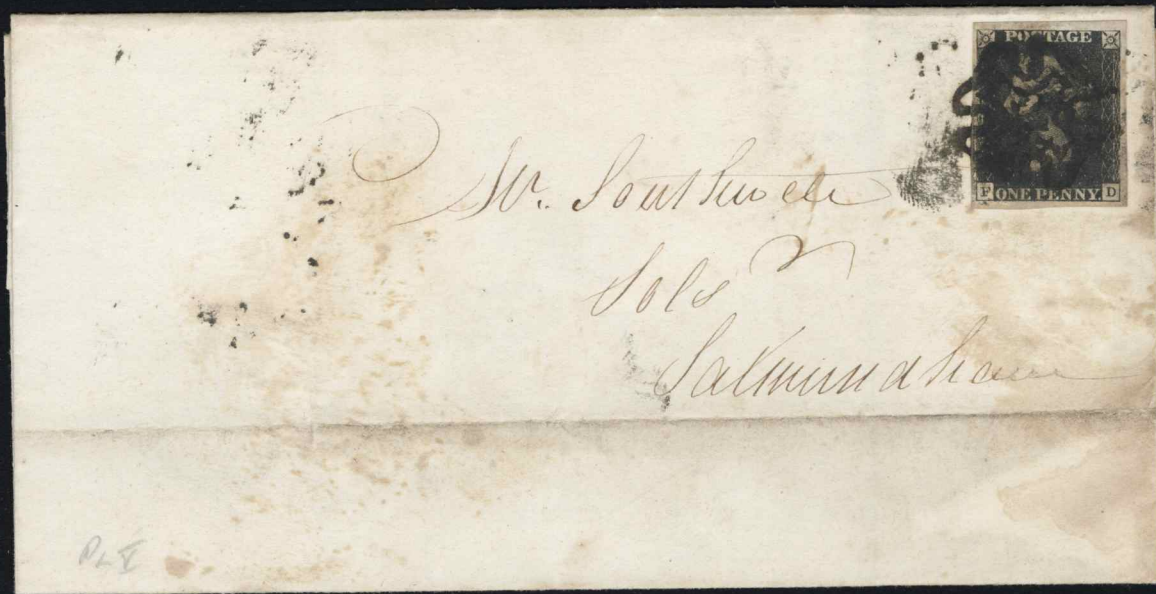 POSTAGE
F ONE PENNY. D
Mr. Southwell
Solr
Saxmundham